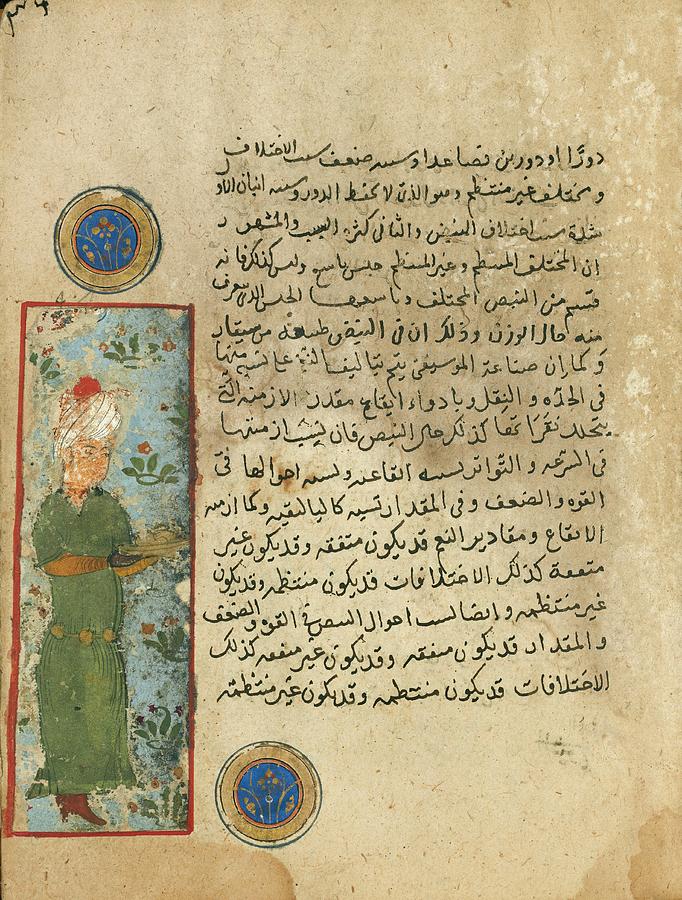 دورًا او دورين فصاعدا و نسبه ضعف نسب الاختلاف
و مختلف غير منتظم و هو الذي لا يحفظ الدور و نسبه اتيان الاو
نسب اختلاف النبض والثاني كثره السبب والمشهور
ان المختلف المنتظم و غير المنتظم جنس تاسع و ليس كذلك فانه
قسم من النبض المختلف و تاسعها الجنس الذي يعرف
منه حال الوزن و ذلك ان في النبض طبيعه موسيقار
و كما ان صناعة الموسيقى يتم بتاليف النغم على نسبه بينها
في الحده و الثقل و بادوار ايقاع مقدار الازمنه التي
يتخلل نقراتها كذلك حال النبض فان نسب ازمنتها
في السرعه و التواتر نسبه ايقاعيه و نسبه احوالها في
القوه و الضعف و في المقدار نسبه كالتاليفيه و كما ازمنه
الايقاع و مقادير النغم قد يكون متفقه و قد يكون غير
متفقة كذلك الاختلافات قد يكون منتظمه و قد يكون
غير منتظمه و ايضا نسب احوال النبض في القوه و الضعف
و المقدار قد يكون متفقه و قد يكون غير متفقه كذلك
الاختلافات قد يكون منتظمه و قد يكون غير منتظمه